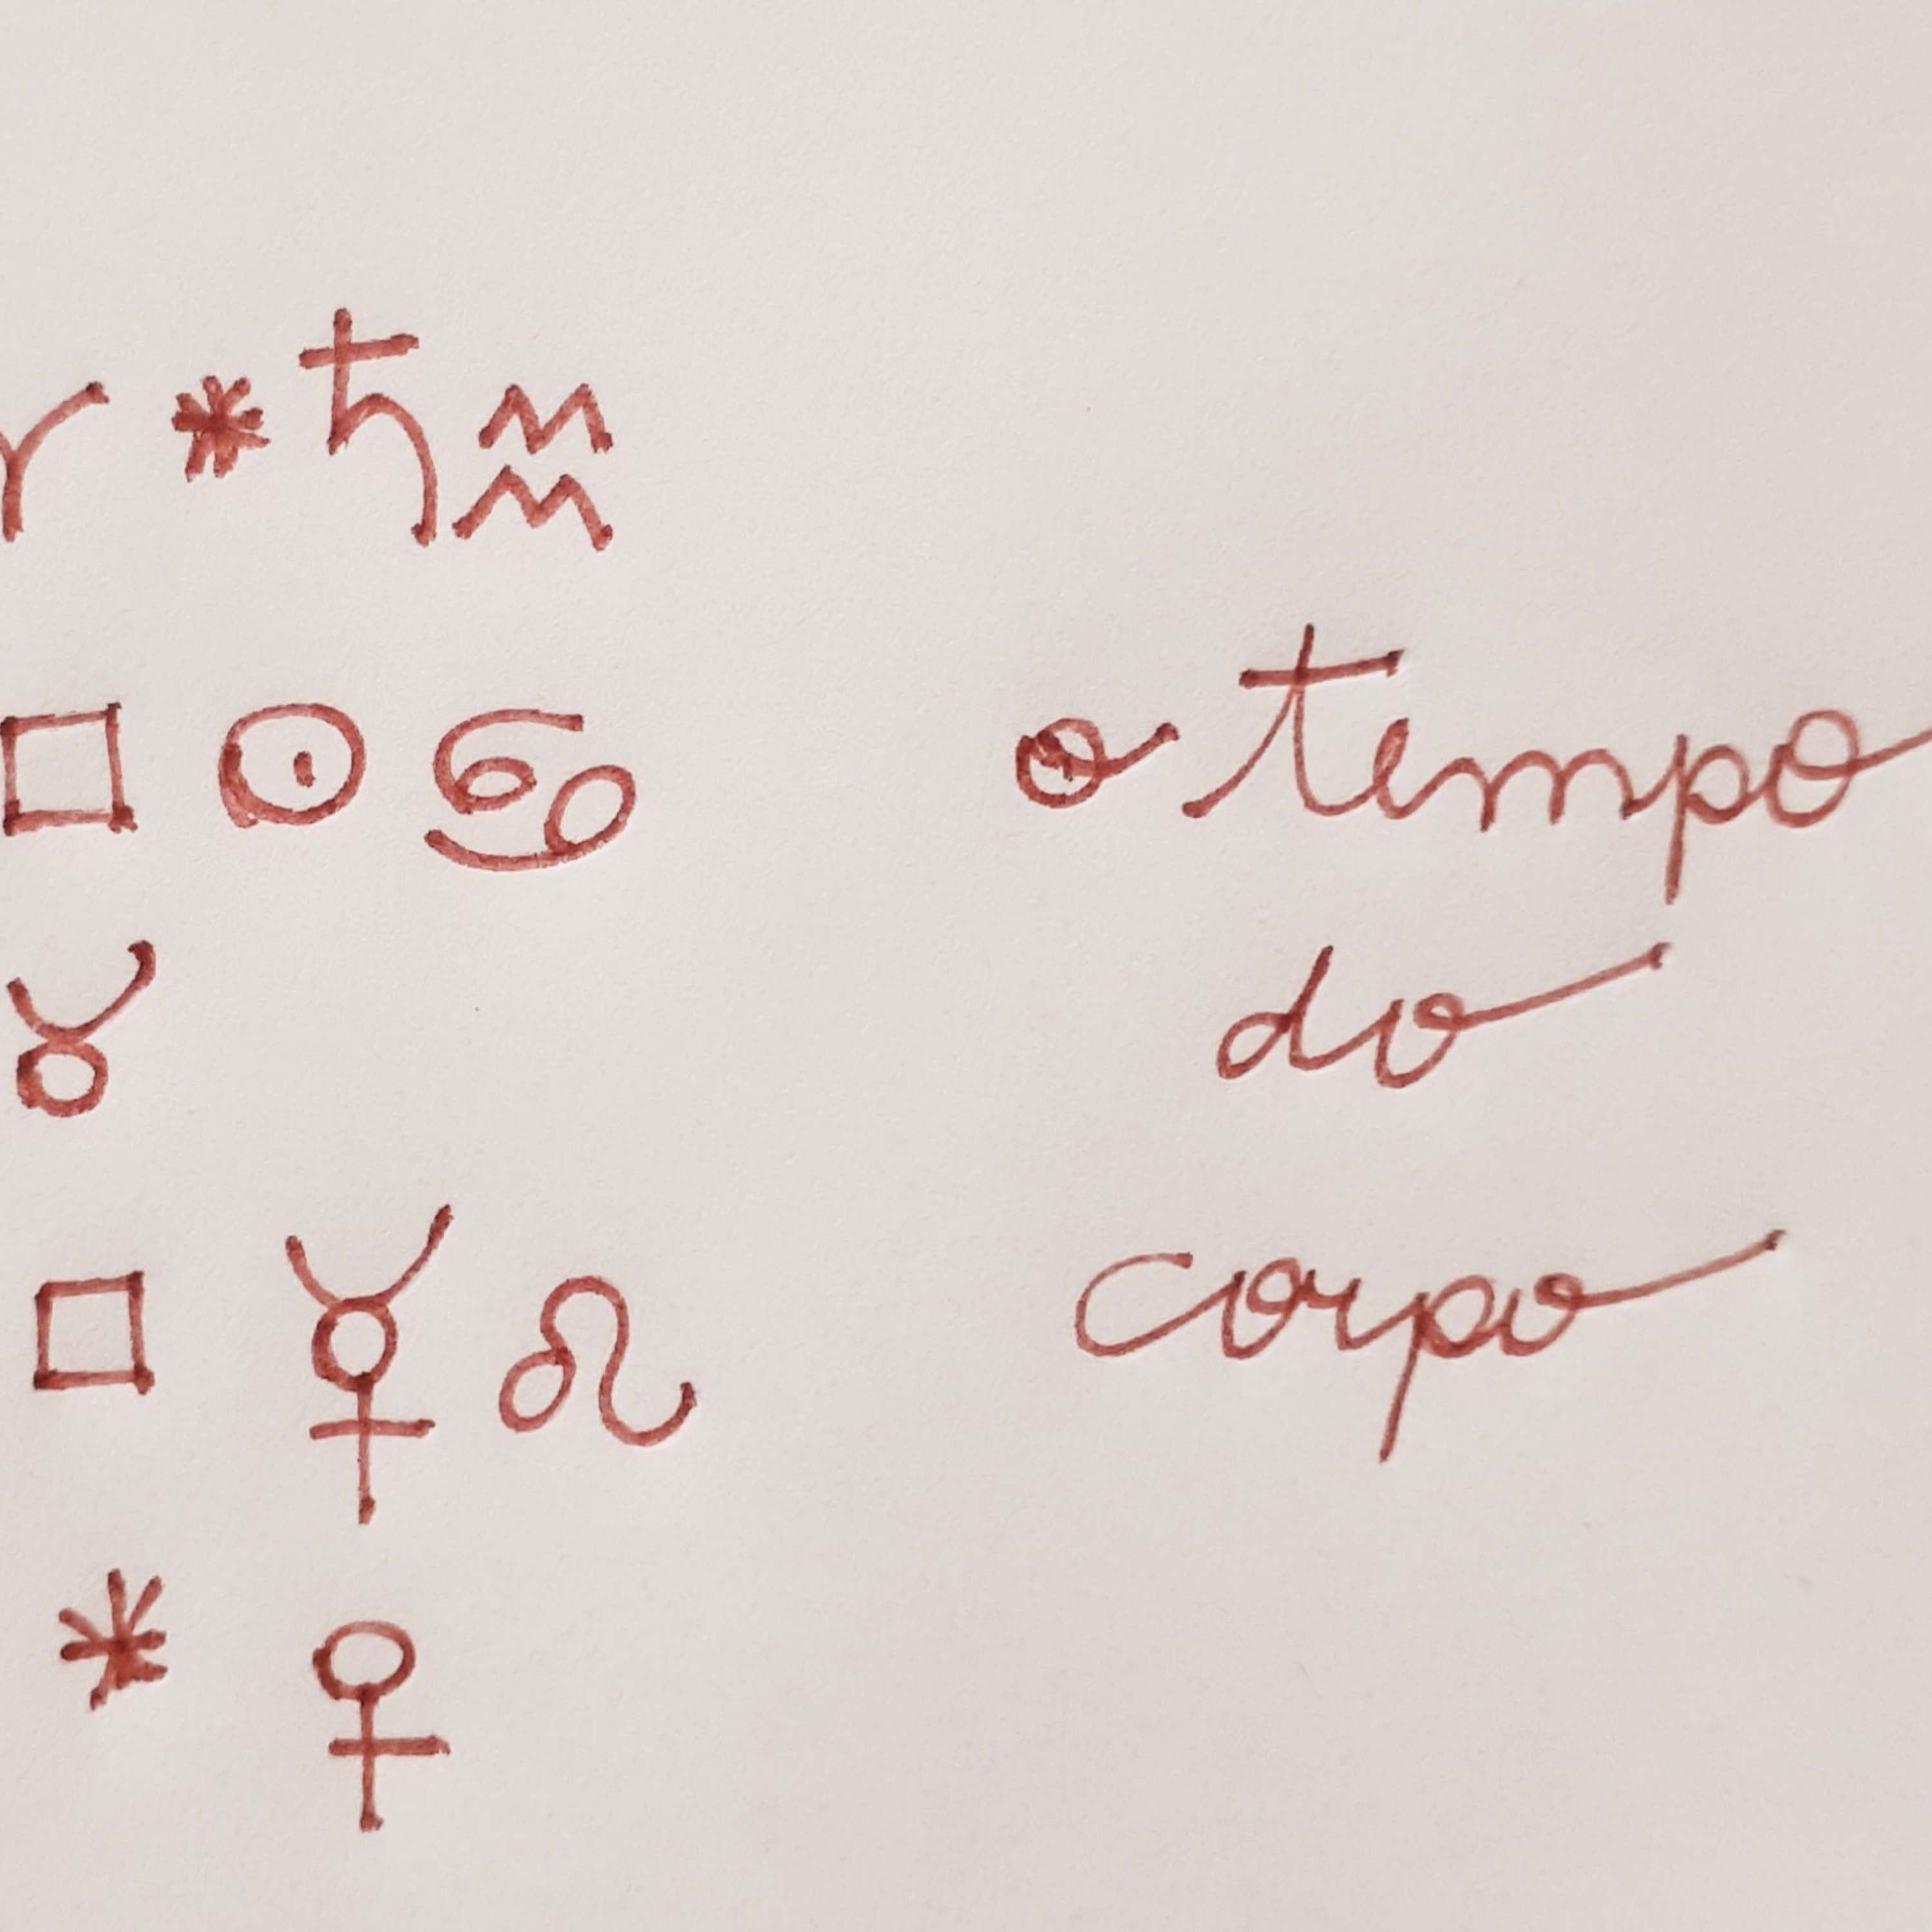 ♈ ⚹ ♄ ♒
□ ☉ ♋ o tempo
♉ do
□ ☿ ♌ corpo
⚹ ♀